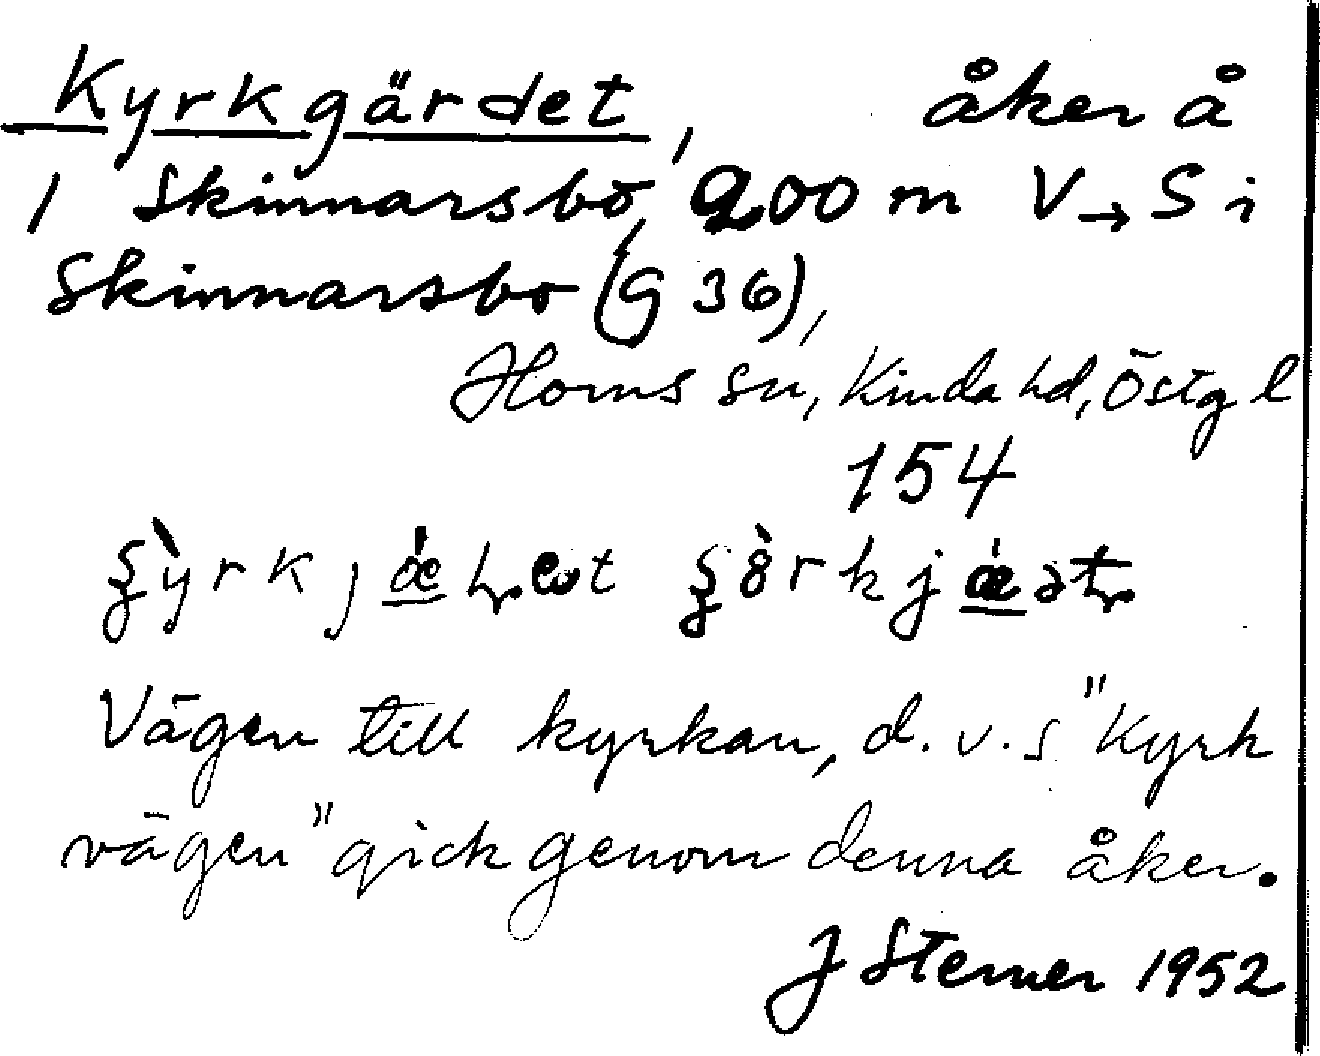 Kyrkgärdet, åker å
1 Skinnarsbo, 200 m V→S i
Skinnarsbo (G 36),
Horns sn, Kinda hd, Östg l
154
Vägen till kyrkan, d. v. s "Kyrk
vägen" gick genom denna åker.
J Sterner 1952